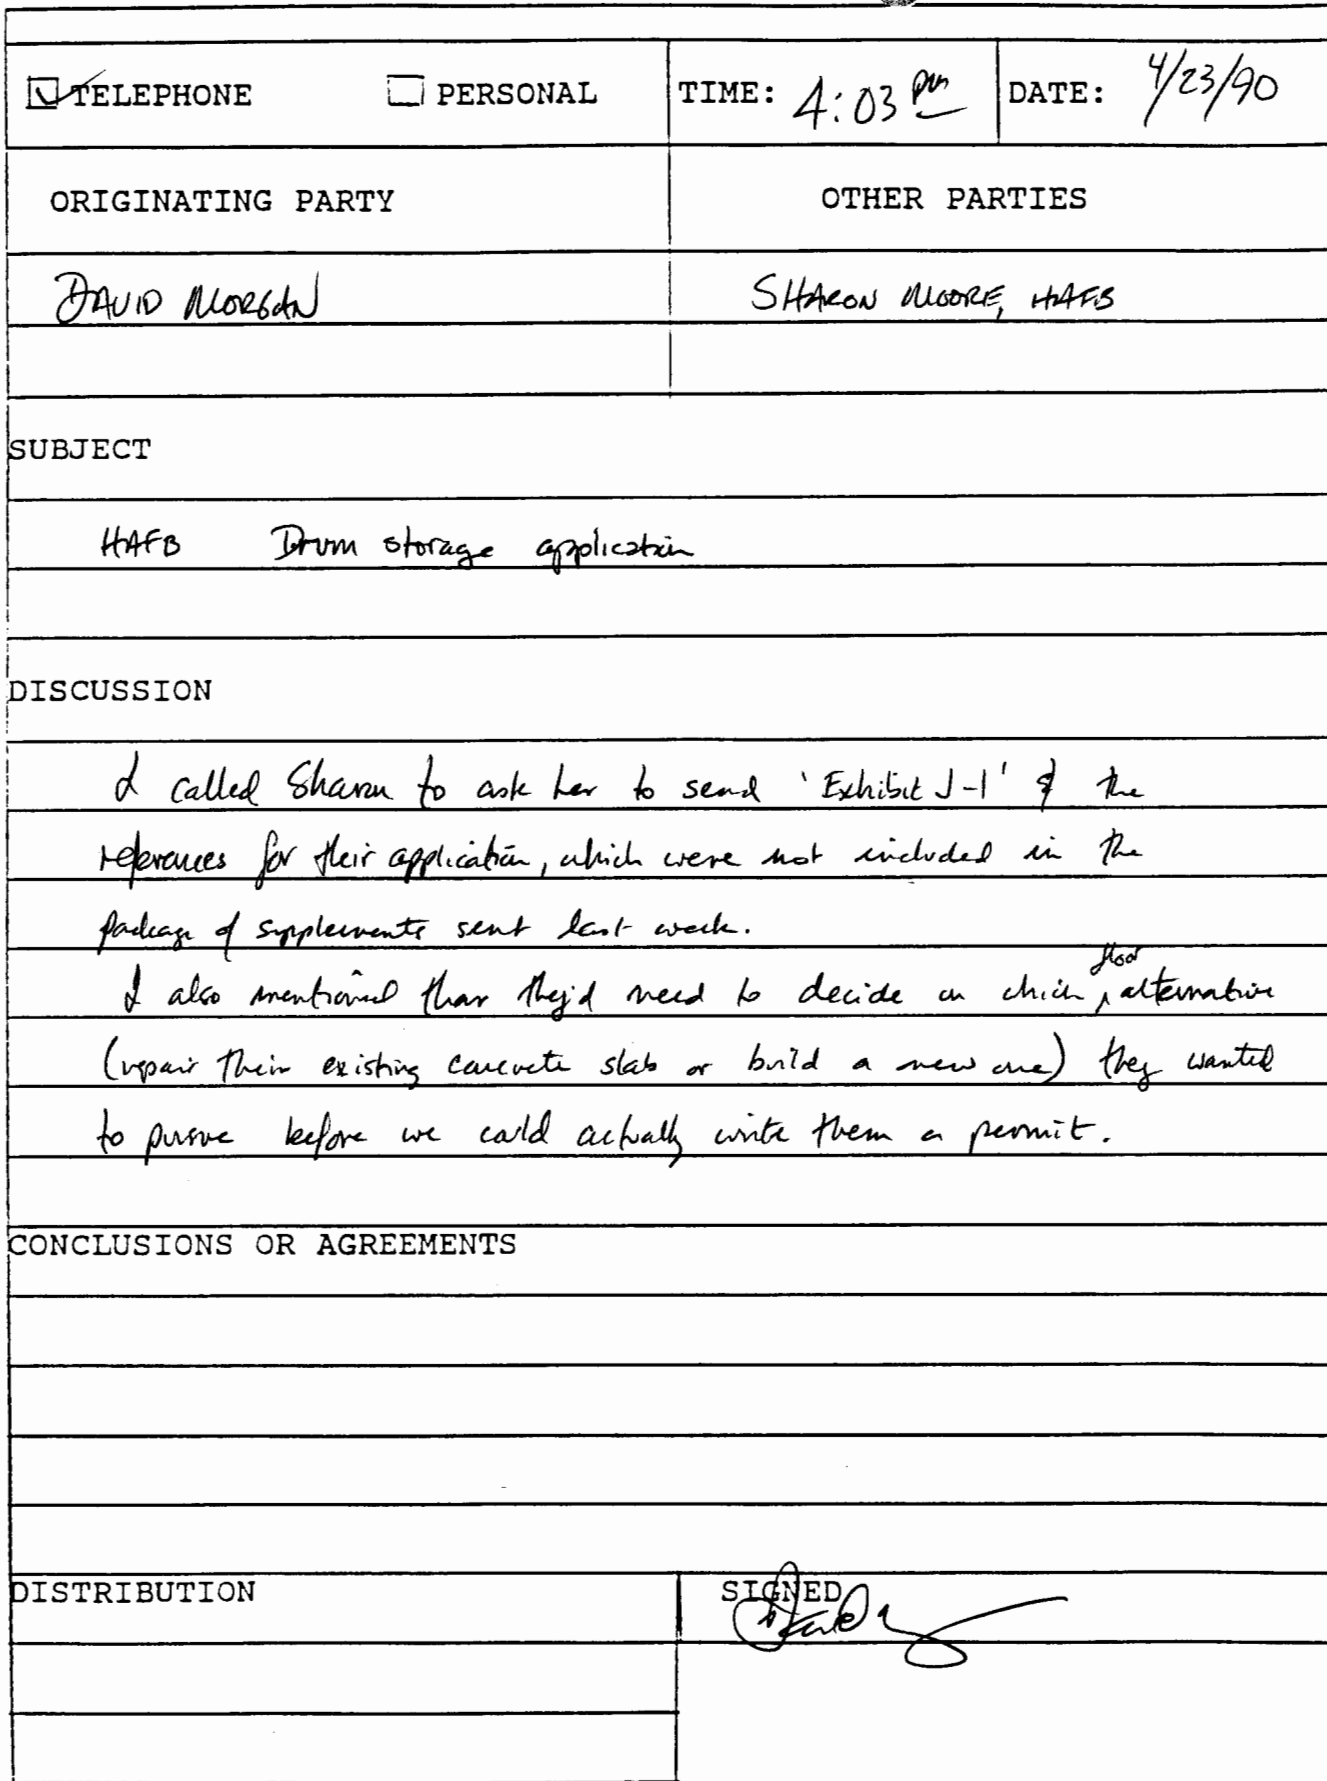 ☑ TELEPHONE ☐ PERSONAL TIME: 4:03 pm DATE: 4/23/90
ORIGINATING PARTY OTHER PARTIES
DAVID MORGAN SHARON MOORE, HAFB
SUBJECT
HAFB Drum storage application
DISCUSSION
I called Sharon to ask her to send 'Exhibit J-1' & the
references for their application, which were not included in the
package of supplements sent last week.
I also mentioned that they'd need to decide on which floor alternative
(repair their existing concrete slab or build a new one) they wanted
to pursue before we could actually write them a permit.
CONCLUSIONS OR AGREEMENTS
DISTRIBUTION SIGNED